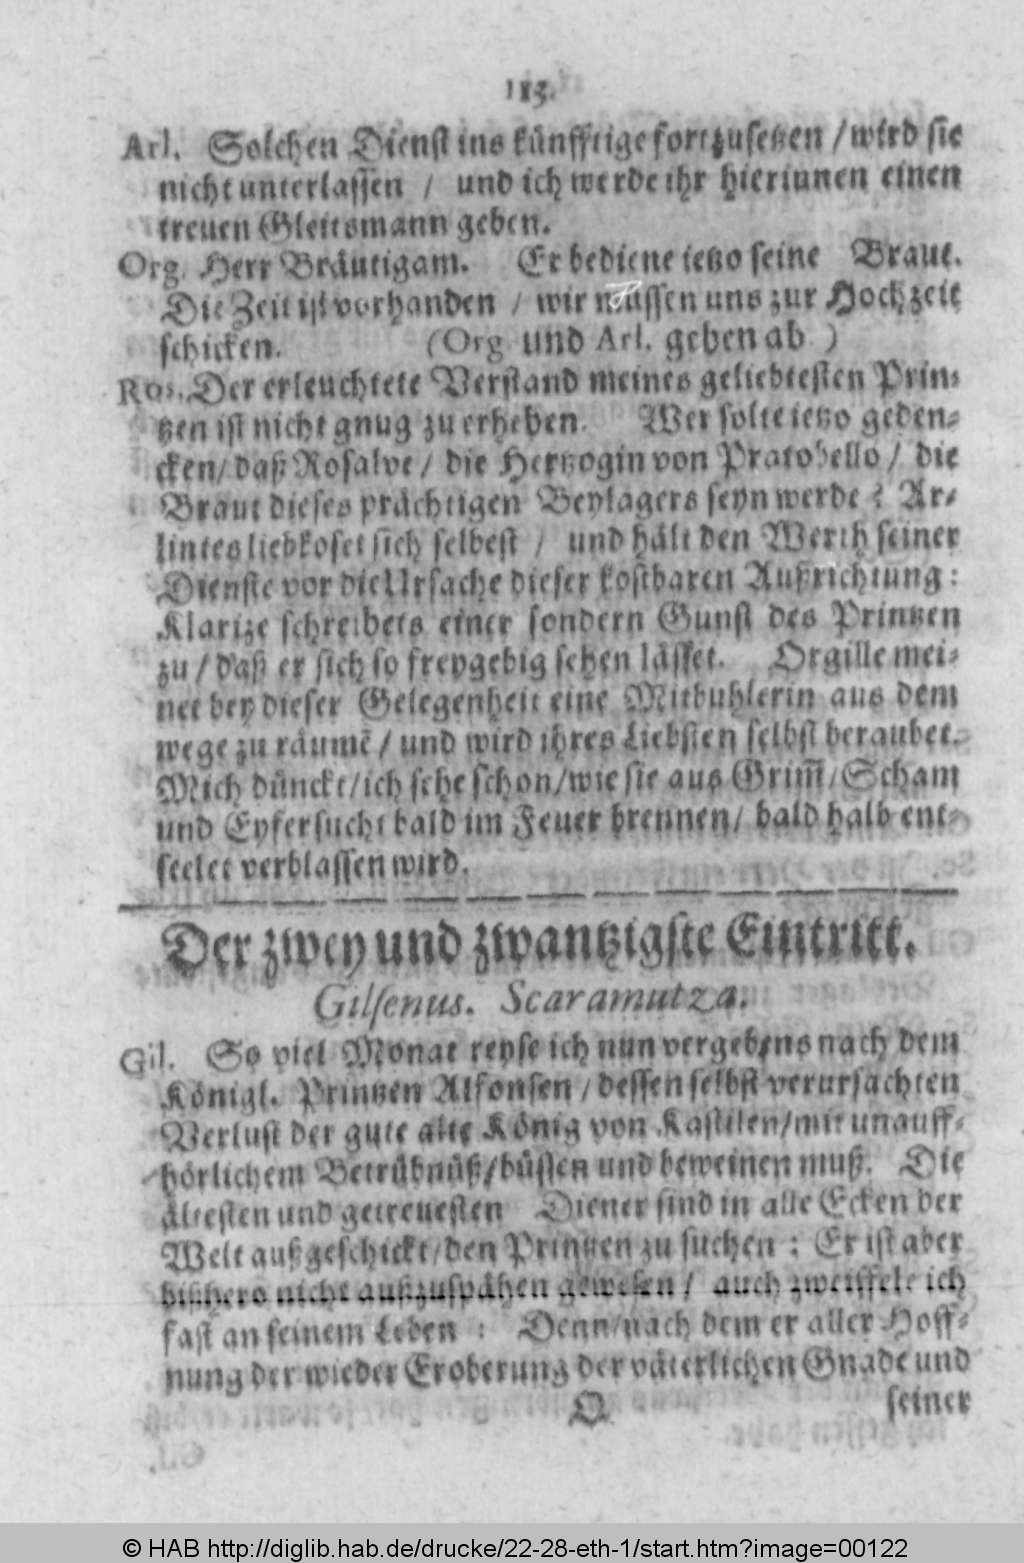 113.
Arl. Solchen Dienst ins künfftige fortzusetzen / wird sie
nicht unterlassen / und ich werde ihr hierinnen einen
treuen Gleitsmann geben.
Org. Herr Bräutigam. Er bediene ietzo seine Braut.
Die Zeit ist vorhanden / wir müssen uns zur Hochzeit
schicken. (Org und Arl. gehen ab )
Ros. Der erleuchtete Verstand meines geliebtesten Prin-
tzen ist nicht gnug zu erheben. Wer solte ietzo geden-
cken / daß Rosalve / die Hertzogin von Pratobello / die
Braut dieses prächtigen Beylagers seyn werde? Ar-
lintes liebkoset sich selbest / und hält den Werth seiner
Dienste vor die Ursache dieser kostbaren Außrichtung:
Klarize schreibets einer sondern Gunst des Printzen
zu / daß er sich so freygebig sehen lässet. Orgille mei-
net bey dieser Gelegenheit eine Mitbuhlerin aus dem
wege zu räumē / und wird ihres Liebsten selbst beraubet.
Mich dünckt / ich sehe schon / wie sie aus Grim̄ / Scham
und Eyfersucht bald im Feuer brennen / bald halb ent-
seelet verblassen wird.
Der zwey und zwantzigste Eintritt.
Gilsenus. Scaramutza.
Gil. So viel Monat reyse ich nun vergebens nach dem
Königl. Printzen Alfonsen / dessen selbst verursachten
Verlust der gute alte König von Kastilen / mit unauff-
hörlichem Betrübnüß / büssen und beweinen muß. Die
ältesten und getreuesten Diener sind in alle Ecken der
Welt außgeschickt / den Printzen zu suchen: Er ist aber
bißhero nicht außzuspähen gewesen / auch zweiffele ich
fast an seinem Leben: Denn / nach dem er aller Hoff-
nung der wieder Eroberung der väterlichen Gnade und
Q seiner
© HAB http://diglib.hab.de/drucke/22-28-eth-1/start.htm?image=00122